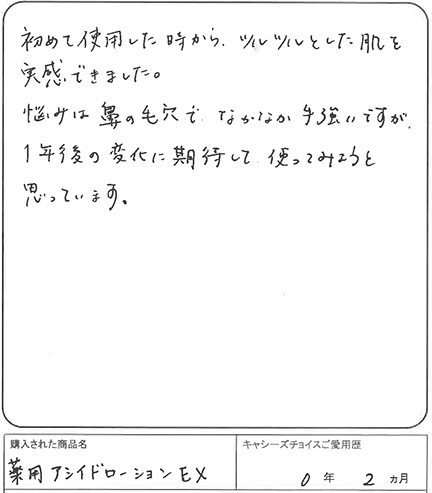 初めて使用した時から、ツルツルとした肌を
実感できました。
悩みは鼻の毛穴で なかなか手強いですが、
1年後の変化に期待して 使ってみようと
思っています。
購入された商品名
キャシーズチョイスご愛用歴
薬用アシイドローションEX
0年 2ヵ月